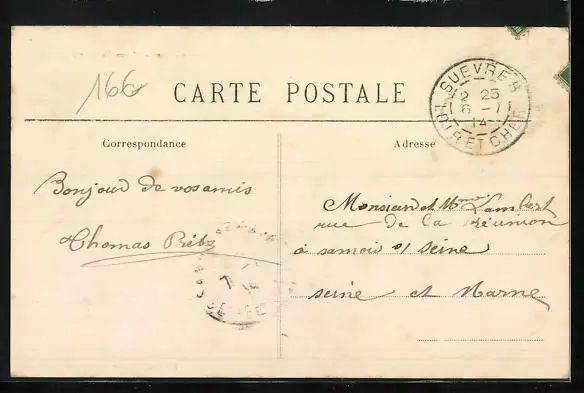 166
CARTE POSTALE
SUEVRES
2 25
6 - 1
14
LOIR ET CHER
Correspondance
Adresse
Bonjour de vos amis
Thomas
Monsieur et Mme Lambert
rue de la Réunion
à samois s/ seine
seine et Marne